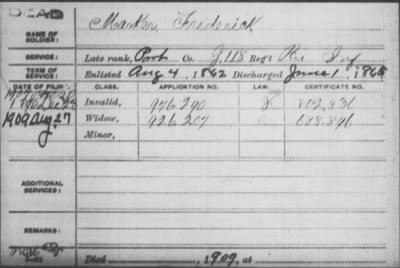 DEAD
NAME OF SOLDIER: Marker, Frederick
SERVICE: Late rank, Co. J, 118 Reg't Pa Inf
TERM OF SERVICE: Enlisted Aug 4, 1862 Discharged June 1, 1865
DATE OF FILING CLASS. APPLICATION NO. LAW. CERTIFICATE NO.
Invalid, 976.290 802.831
1909 Aug 27 Widow, 926.207 688.896
Minor,
ADDITIONAL SERVICES:
REMARKS:
Died , 1909, at